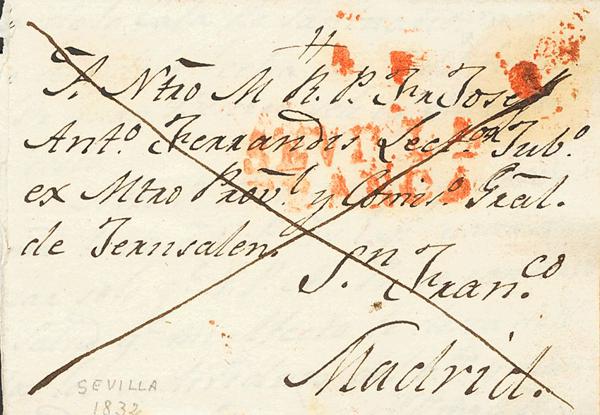 A Ntro M R. P. Fr Josef
Anto. Fernandis Lector Jubo.
ex Mtro Provl. y Comiso. Gral.
de Jerusalen.
Sn. Franco.
Madrid.
SEVILLA
SEVILLA
1832